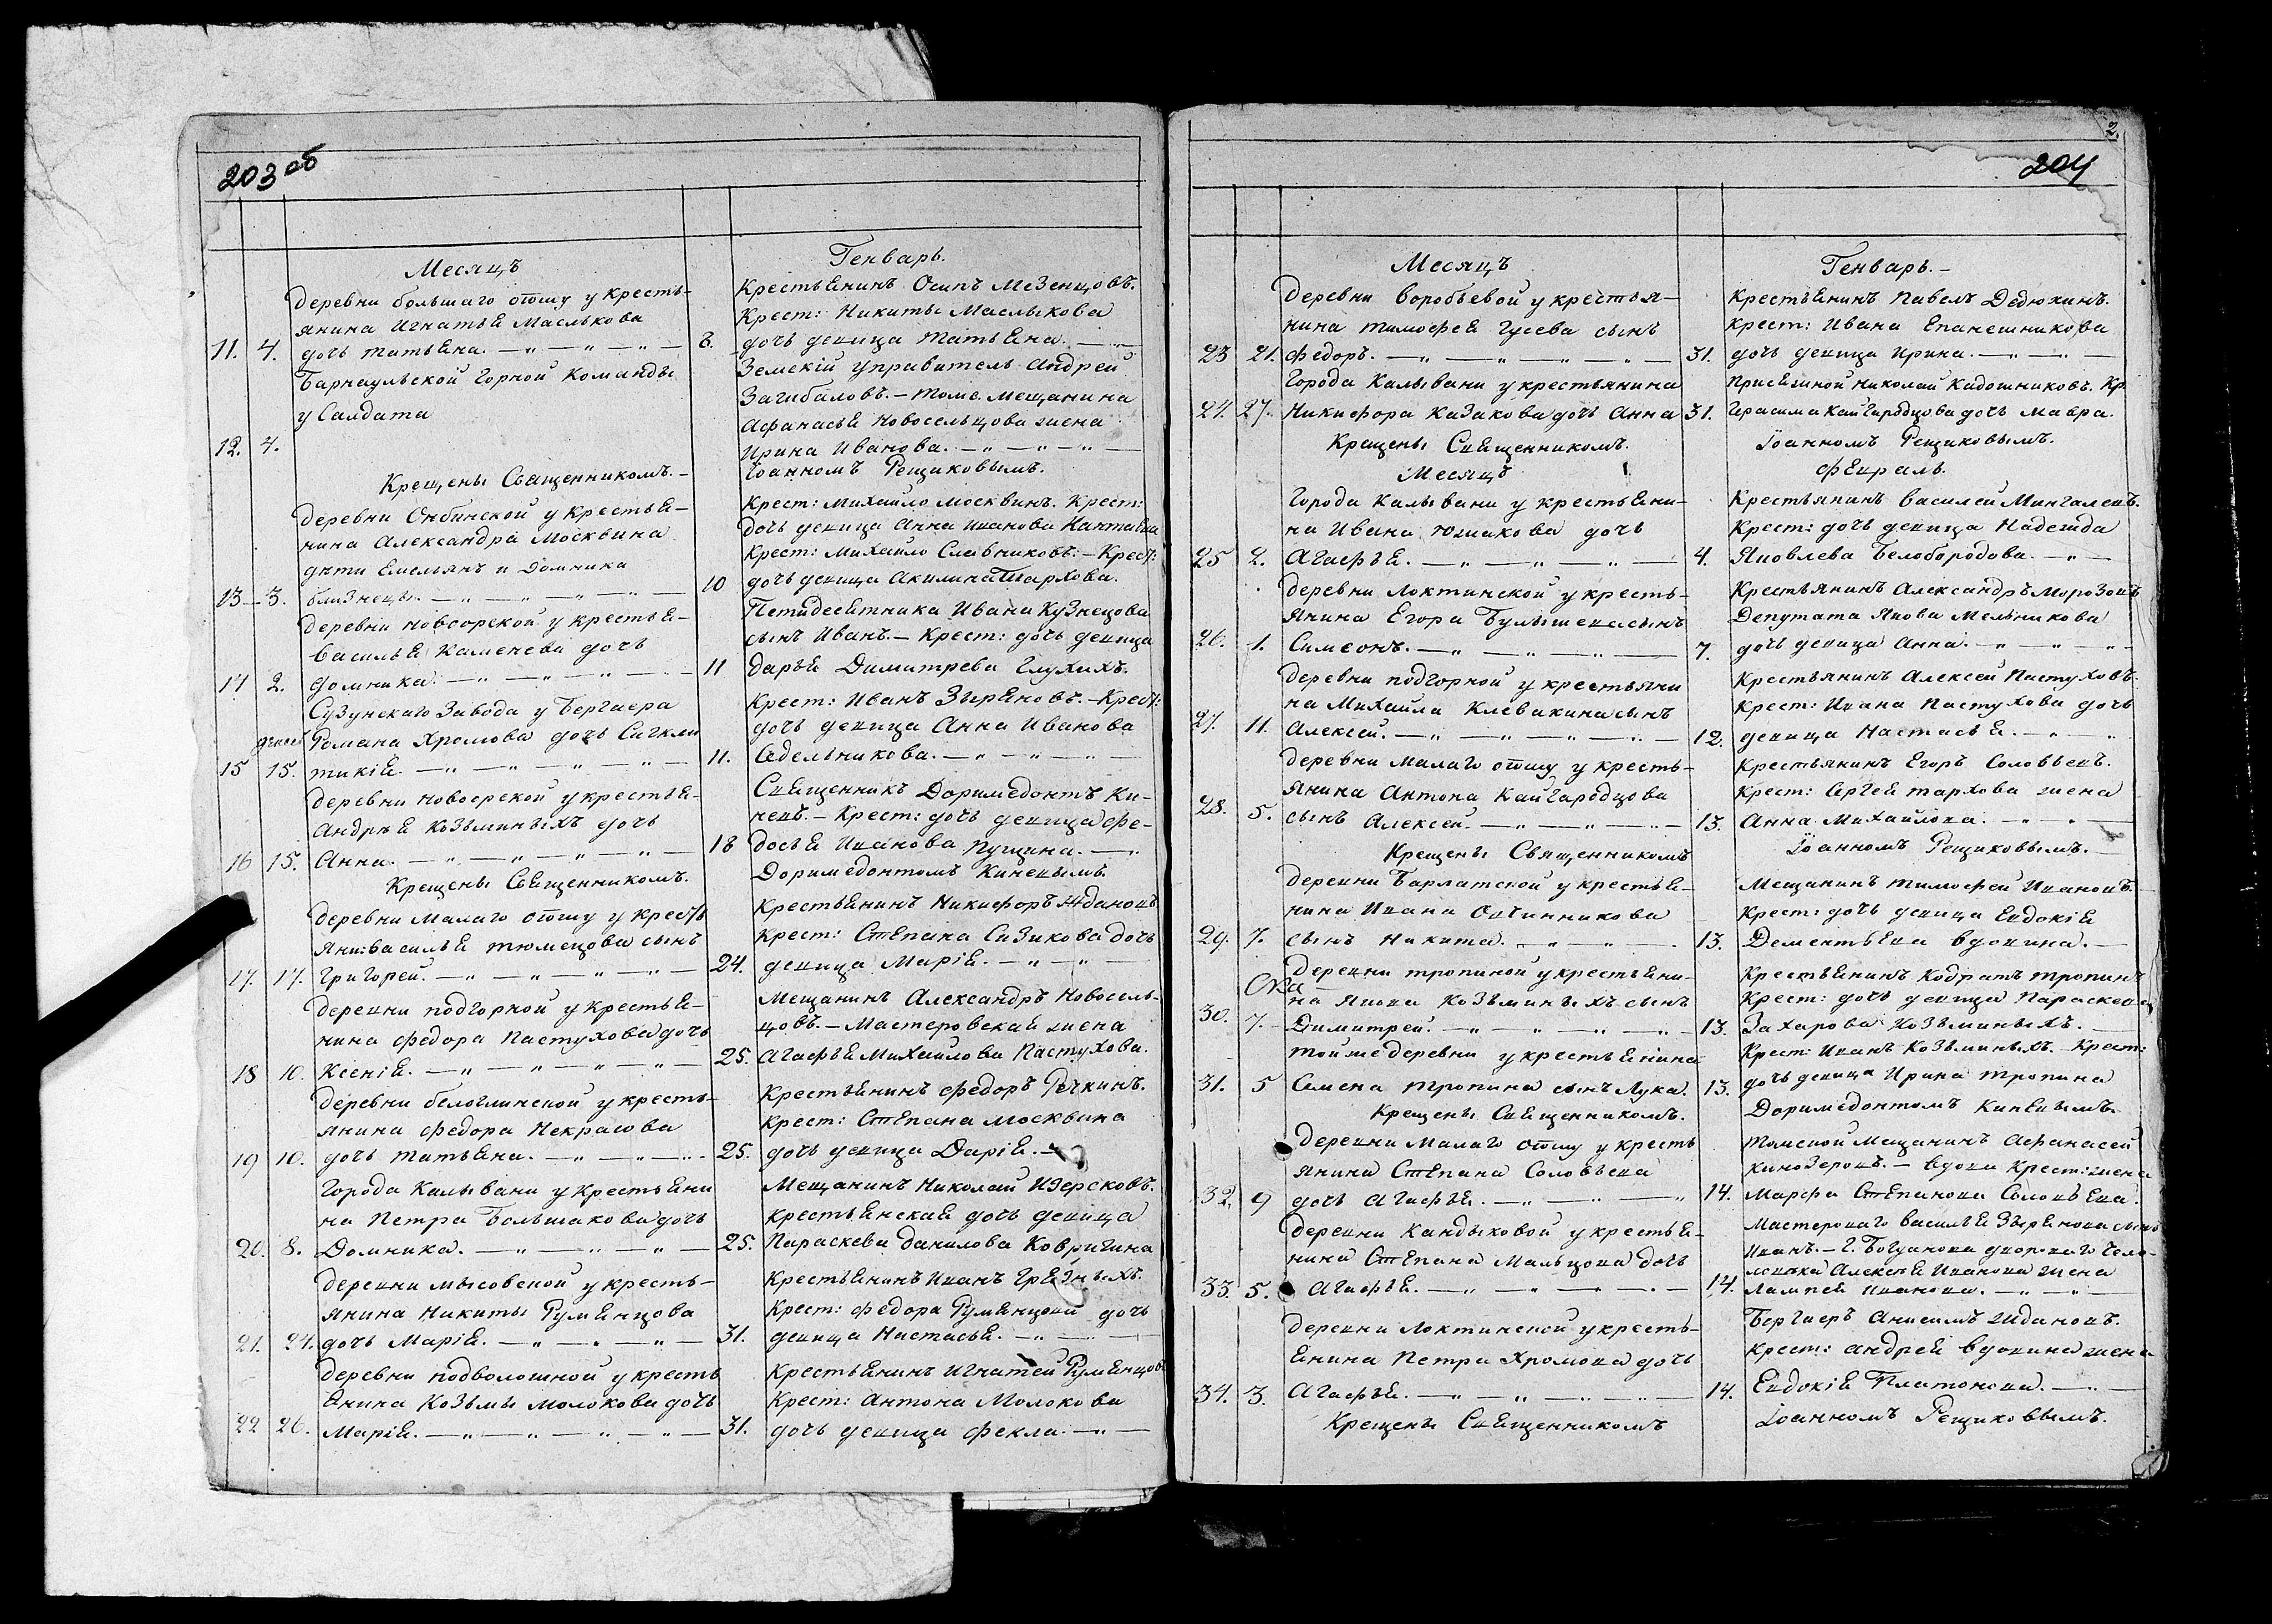 203 об
Месяцъ Генварь.
деревни большаго отшу у кресть-
янина Игнатья Маслькова
11. 4. дочь татьяна. 8.
Барнаульской Горной Команды
у Салдата
12. 4.
Крещены Священникомъ.
деревни Онбинской у крестья-
нина Александра Москвина
дѣти Емельянъ и Домника
13 3. близнецы. 10
деревни новоорской у крестья-
Василья Каменева дочь
14 2. домника. 11
Сузунскаго Завода у Бергаера
Романа Хромова дочь Сигкли
15 15. тикія. 11.
деревни новоорской у крестья-
Андрея Козьминыхъ дочь
16 15. Анна. 18
Крещены Священникомъ.
деревни Малаго отшу у кресть
яни: василья тюменцова сынъ
17. 17. Григорей. 24.
деревни подгорной у крестья-
нина федора Пастухова дочь
18 10. Ксенія. 25.
деревни белоглинской у кресть-
янина федора Некрасова
19 10. дочь татьяна. 25.
Города Калывани у крестьяни
на Петра Большакова дочь
20. 8. Домника. 25.
деревни мысовской у кресть-
янина Никиты Румянцова
21. 24. дочь Марія. 31.
деревни подволошной у кресть
янина Козьмы Молокова дочь
22 26. Марія. 31.
Крестьянинъ Осипъ Мезенцовъ.
Крест: Никиты Маслыкова
дочь девица татьяна.
Земскій управитель андрей
Загибаловъ. – томс. Мещанина
Афанасья Новосельцова жена
Ирина Иванова.
Іоанномъ Рещиковымъ.
Крест: Михайло москвинъ. Крест:
дочь девица Анна Иванова
Крест: Михайло Славниковъ. – Крест:
дочь девица Акилина Тархова.
Петидесятника Ивана Кузнецова
сынъ Иванъ. – Крест: дочь девица
дарья Димитрева Глухихъ.
Крест: Иванъ Зыряновъ. – Крест:
дочь девица Анна Иванова
Седельникова.
Священникъ Доримедонтъ Ки-
невъ. – Крест: дочь девица фе-
досья Иванова Пущина.
Доримедонтомъ Киневымъ.
Крестьянинъ Никифоръ Ждановъ
Крест: Степана Сизикова дочь
девица Марія.
Мещанинъ Александръ Новосель-
цовъ. – Мастеровская жена
Агафья Михайлова Пастухова.
Крестьянинъ федоръ Речкинъ.
Крест: Степана москвина
дочь девица Дарія.
Мещанинъ Николай Изересковъ.
Крестьянская дочь девица
Параскева данилова Ковригина
Крестьянинъ Иванъ Грязныхъ.
Крест: федора Румянцова дочь
девица Настасья.
Крестьянинъ Игнатей Румянцовъ
Крест: Антона Молокова
дочь девица фекла.
2.
204
Месяцъ Генварь.
деревни воробьевой у крестья-
нина тимофея Гусева сынъ
23 21. федоръ. 31.
Города Калывани у крестьянина
24. 27. Никифора Казакова дочь Анна 31.
Крещены Священникомъ.
Месяцъ Февраль.
Города Калывани у крестьяни-
на Ивана Юшакова дочь
25 2. Агафья. 4.
деревни Локтинской у кресть-
янина Егора Булышева сынъ
26. 1. Симеонъ. 7.
деревни подгорной у крестьяни
на Михаила Клевакина сынъ
27. 11. Алексей. 12.
деревни малаго отшу у кресть-
янина Антона Кайгародцова
28. 5. сынъ Алексей. 13.
Крещены Священникомъ
деревни Барлатской у крестья-
нина Ивана Овчинникова
29. 7. сынъ Никита. 13.
деревни тропиной у крестьяни-
на Якова Козьминыхъ сынъ
30. 7. Димитрей. 13.
тойже деревни у крестьянина
31. 5 Семена тропина сынъ Лука. 13.
Крещены Священникомъ.
деревни Малаго Отшу у кресть
янина Степана Соловьева
32. 9 дочь агафья. 14.
деревни Кандыковой у крестья-
нина Степана Мальцова дочь
33. 5. агафья. 14.
деревни Локтинской у кресть-
янина Петра Хромова дочь
34. 3. Агафья. 14.
Крещены Священникомъ
Крестьянинъ Павелъ Дедюхинъ.
крест: Ивана Епанешникова
дочь девица Ирина.
Присяжной Николай Кадошниковъ. Кр
Герасима Кайгародцова дочь Мавра.
Іоанномъ Рещиковымъ.
Крестьянинъ василей Мингалевъ.
Крест: дочь девица Надежда
Яковлева Белобородова.
Крестьянинъ Александръ Морозовъ
Депутата Якова Мельникова
дочь девица Анна.
Крестьянинъ Алексей Пастуховъ.
Крест: Ивана Пастухова дочь
девица Настасья.
Крестьянинъ Егоръ Соловьевъ.
Крест: Сергея тархова жена
Анна Михайлова.
Іоанномъ Рещиковымъ.
Мещанинъ тимофей Ивановъ.
Крест: дочь девица Евдокія
Дементьева вдовина.
Крестьянинъ Кодратъ тропинъ
Крест: дочь девица Параскева
Захарова Козьминыхъ.
Крест: Иванъ Козьминыхъ. Крест:
дочь девица Ирина тропина
Доримедонтомъ Киневымъ.
томской Мещанинъ Афанасей
Кинозеровъ. – вдова Крест: жена
Марфа Степанова Соловьева.
Мастероваго василья Зырянова сынъ
Иванъ. – Г. Богданова двороваго чело-
века Алексея Иванова жена
Лампея Иванова.
Бергаеръ Анисимъ Ждановъ.
Крест: андрея вдовина жена
Евдокія Платонова.
Іоанномъ Рещиковымъ.